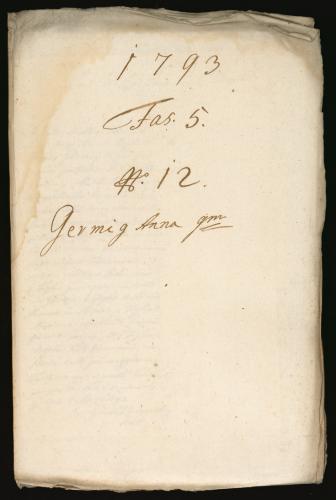 1793
Fas. 5.
No. 12.
Germig Anna qm